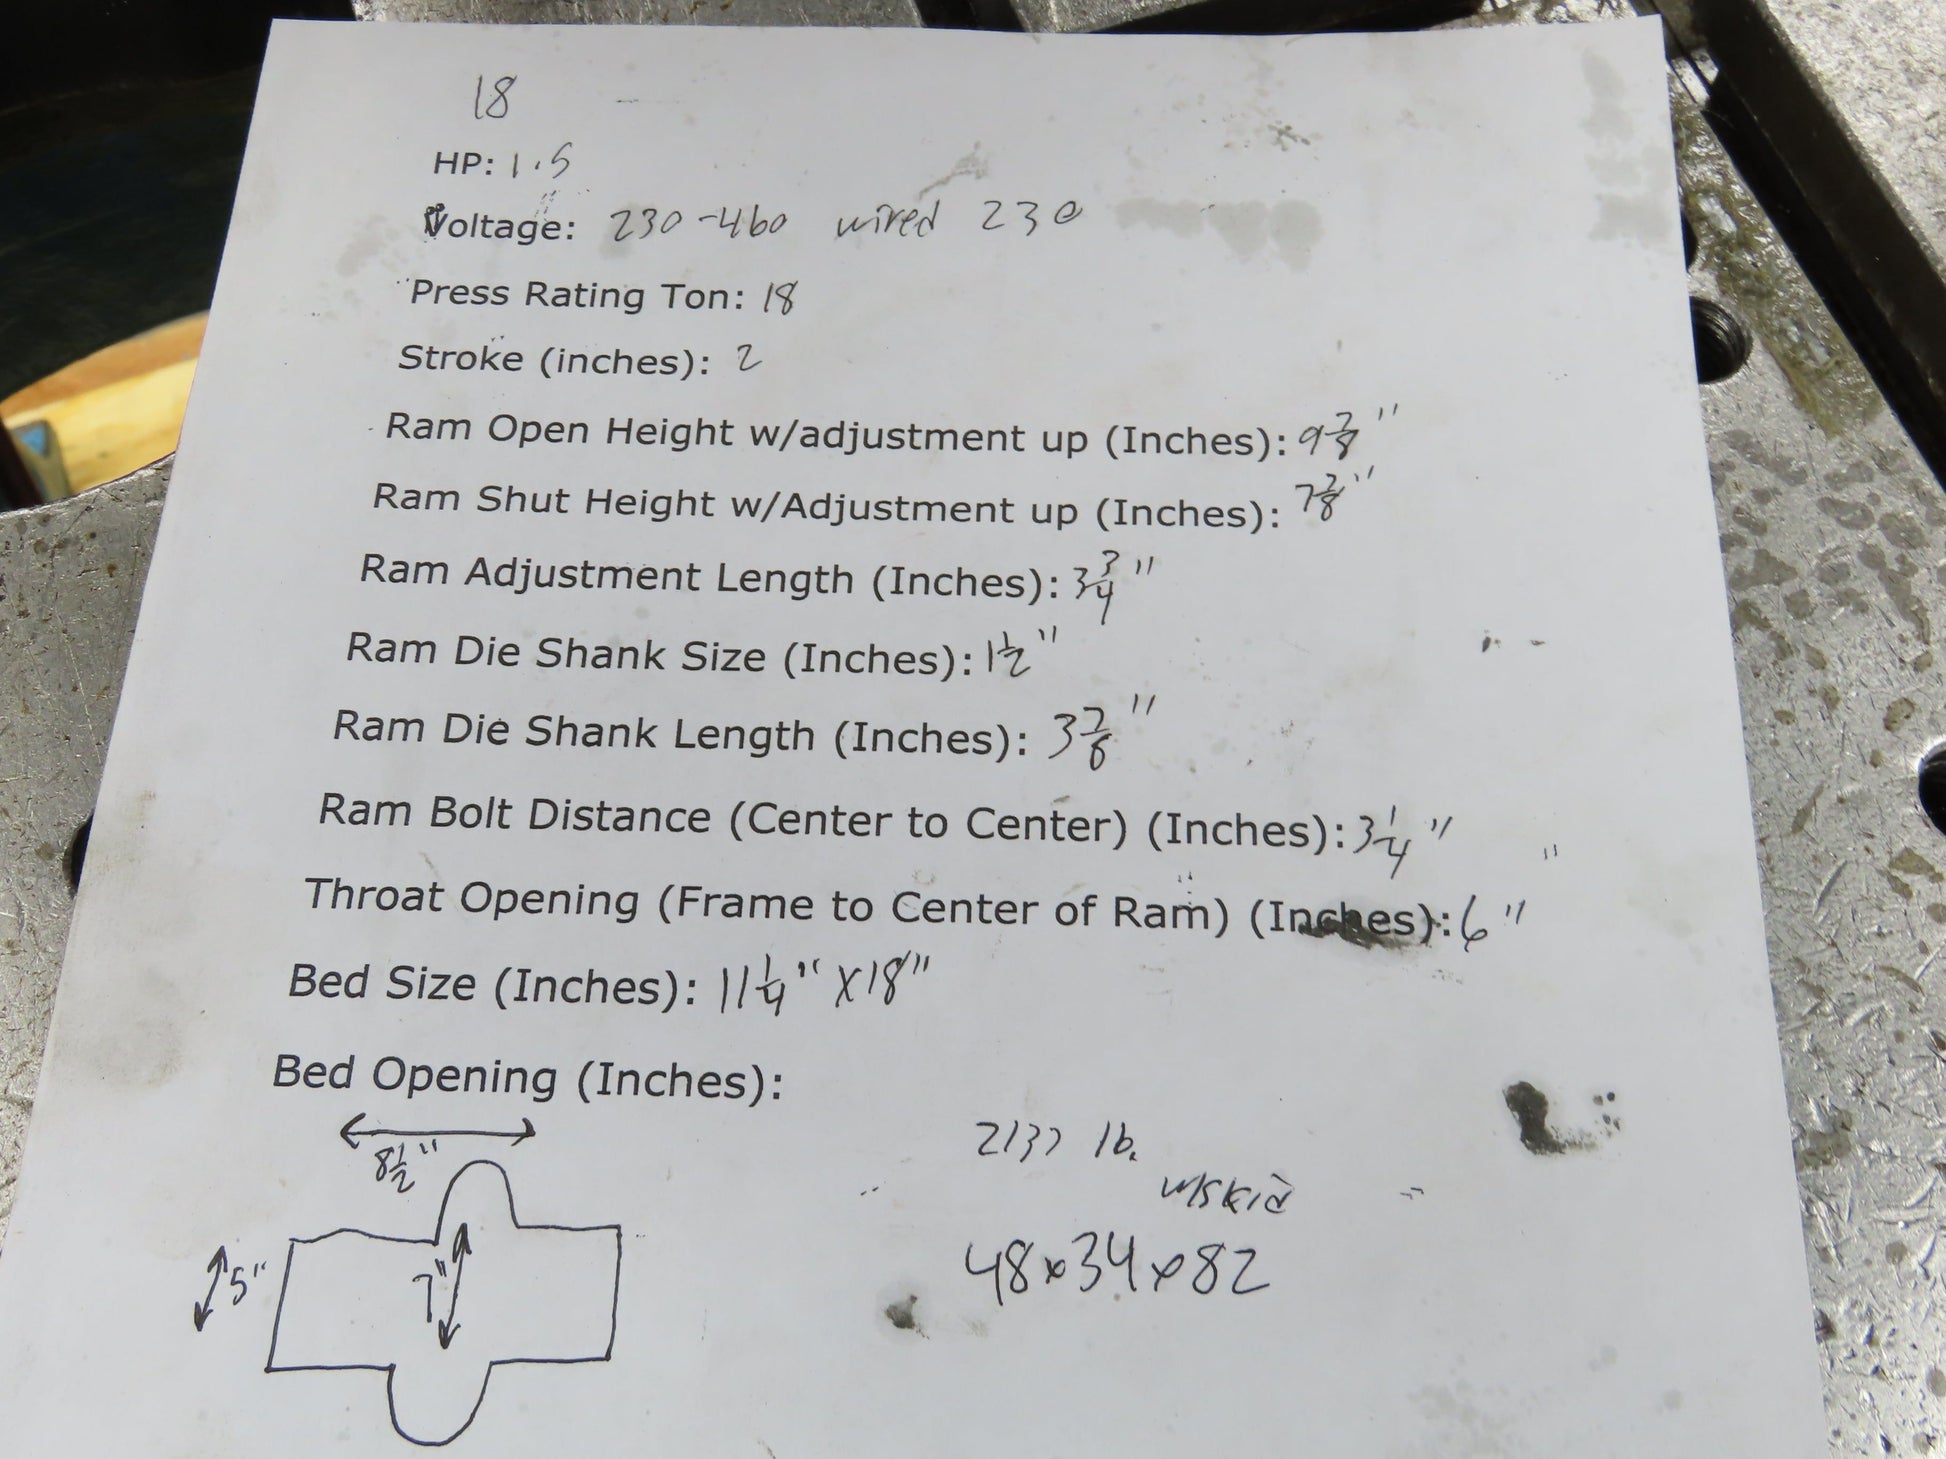 18
HP: 1.5
Voltage: 230-460 wired 230
Press Rating Ton: 18
Stroke (inches): 2
Ram Open Height w/adjustment up (Inches): 9 7/8"
Ram Shut Height w/Adjustment up (Inches): 7 7/8"
Ram Adjustment Length (Inches): 3 3/4"
Ram Die Shank Size (Inches): 1 1/2"
Ram Die Shank Length (Inches): 3 7/8"
Ram Bolt Distance (Center to Center) (Inches): 3 1/4"
Throat Opening (Frame to Center of Ram) (Inches): 6"
Bed Size (Inches): 11 1/4" x 18"
Bed Opening (Inches):
8 1/2"
5"
7"
2137 lb.
w/skid
48x34x82